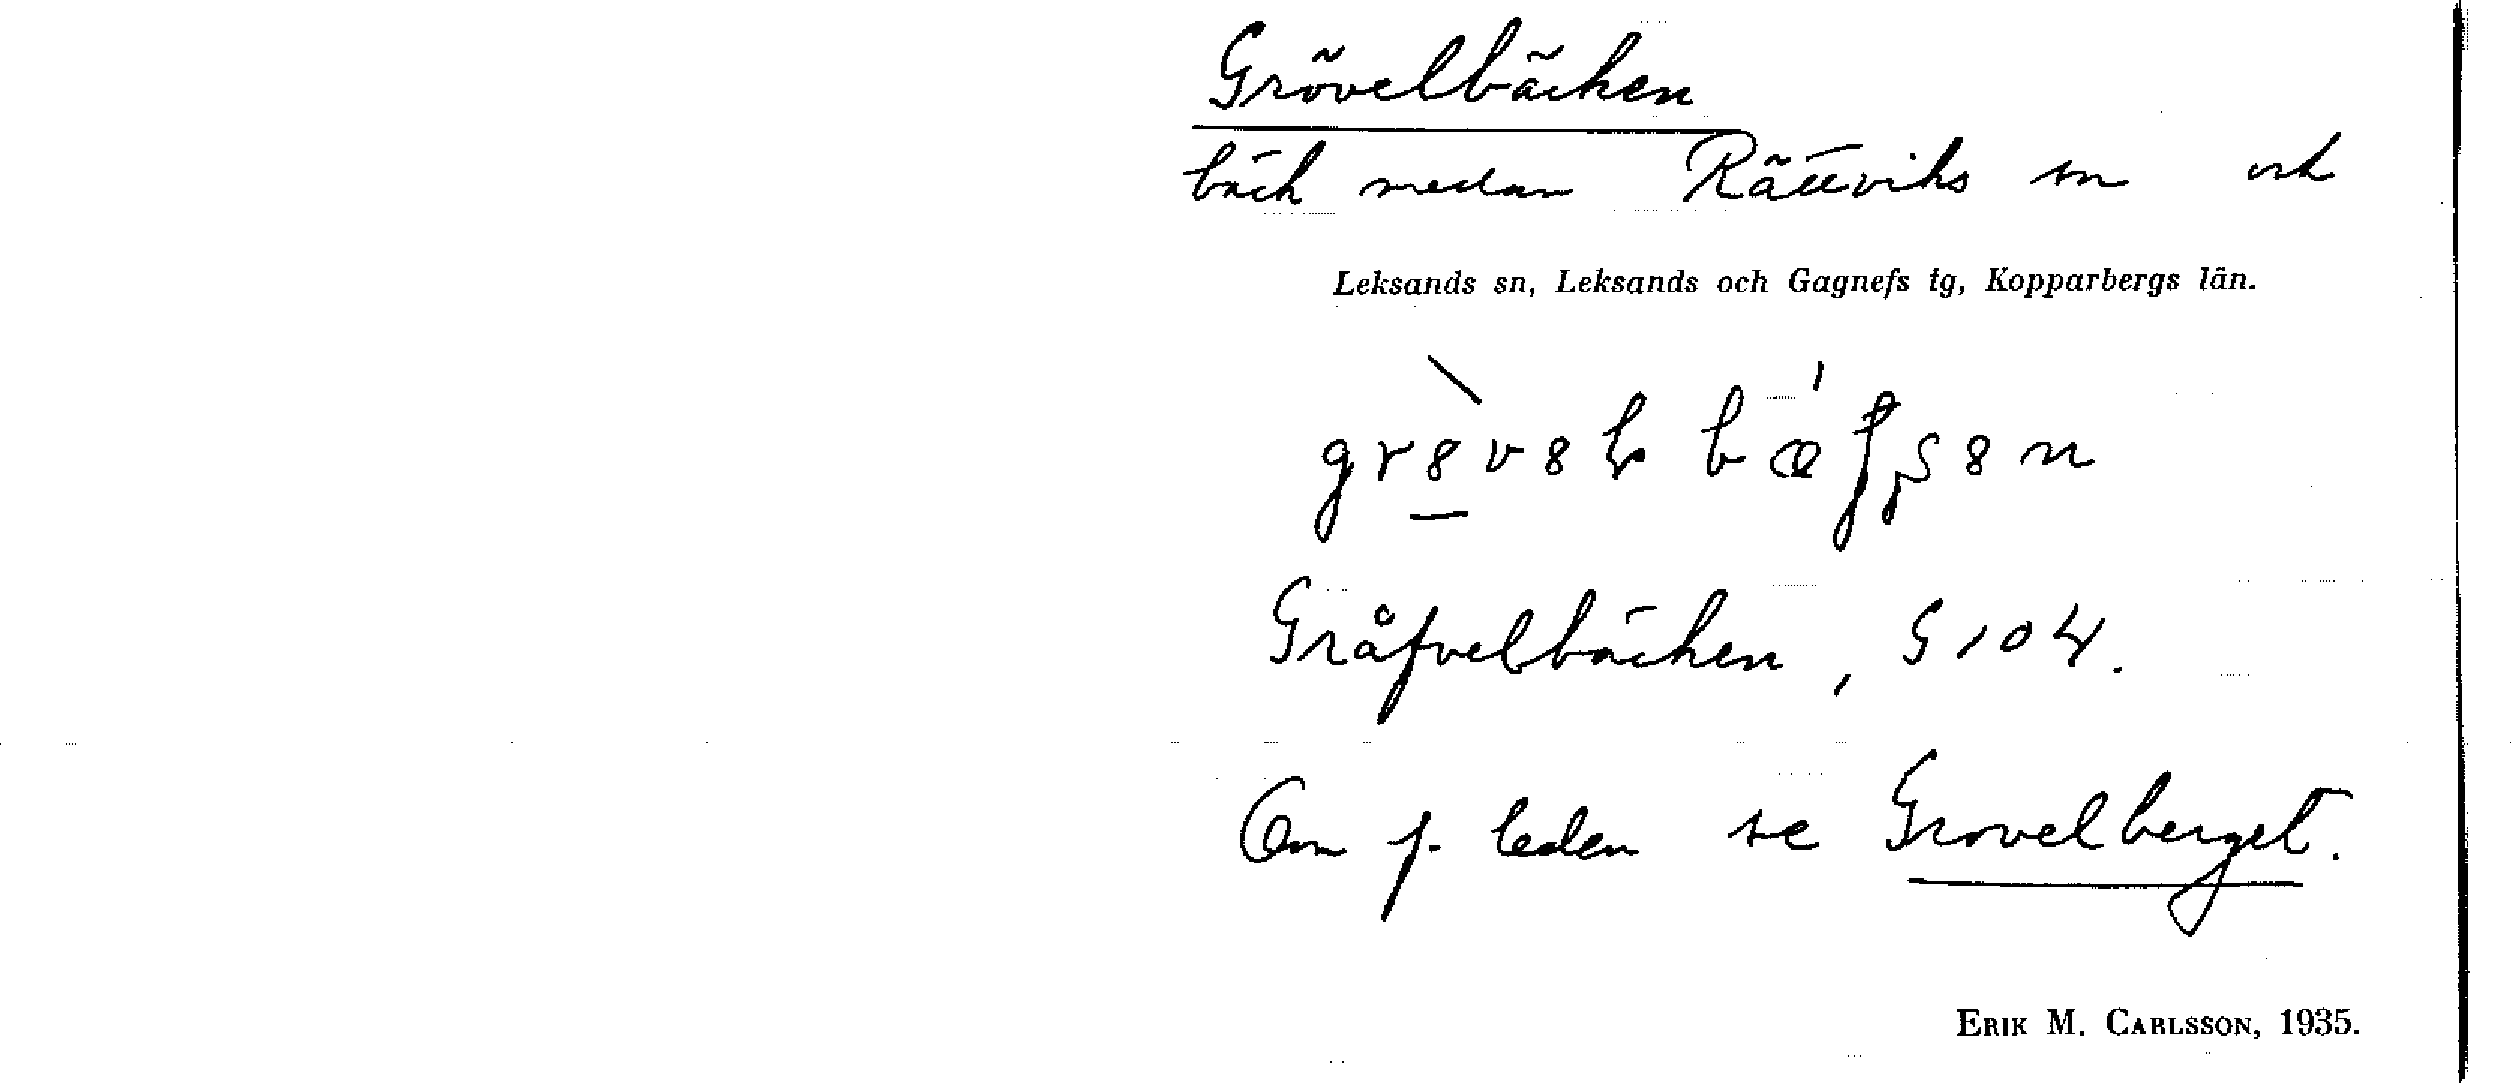 Grövelbäcken
bäck mellan Rättviks sn och
Leksands sn, Leksands och Gagnefs tg, Kopparbergs län.
Gråfvelbäcken, G 104.
Om f. leden se Grovelberget.
ERIK M. CARLSSON, 1935.